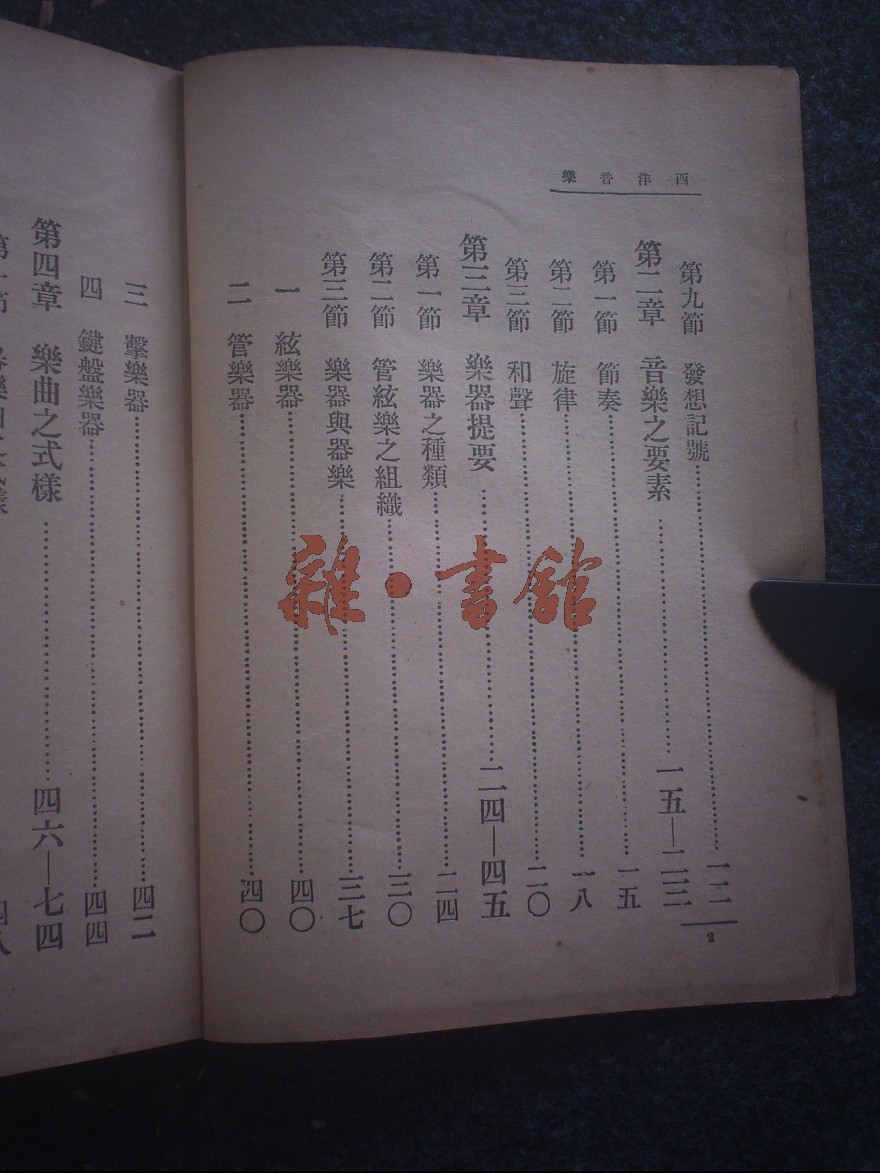 西洋音樂
第九節 發想記號………一二
第二章 音樂之要素………一五—二三
第一節 節奏………一五
第二節 旋律………一八
第三節 和聲………二〇
第三章 樂器提要………二四—四五
第一節 樂器之種類………二四
第二節 管絃樂之組織………三〇
第三節 樂器與器樂………三七
一 絃樂器………四〇
二 管樂器………四〇
2
三 擊樂器………四二
四 鍵盤樂器………四四
第四章 樂曲之式樣………四六—七四
第一節
四八
雜·書館